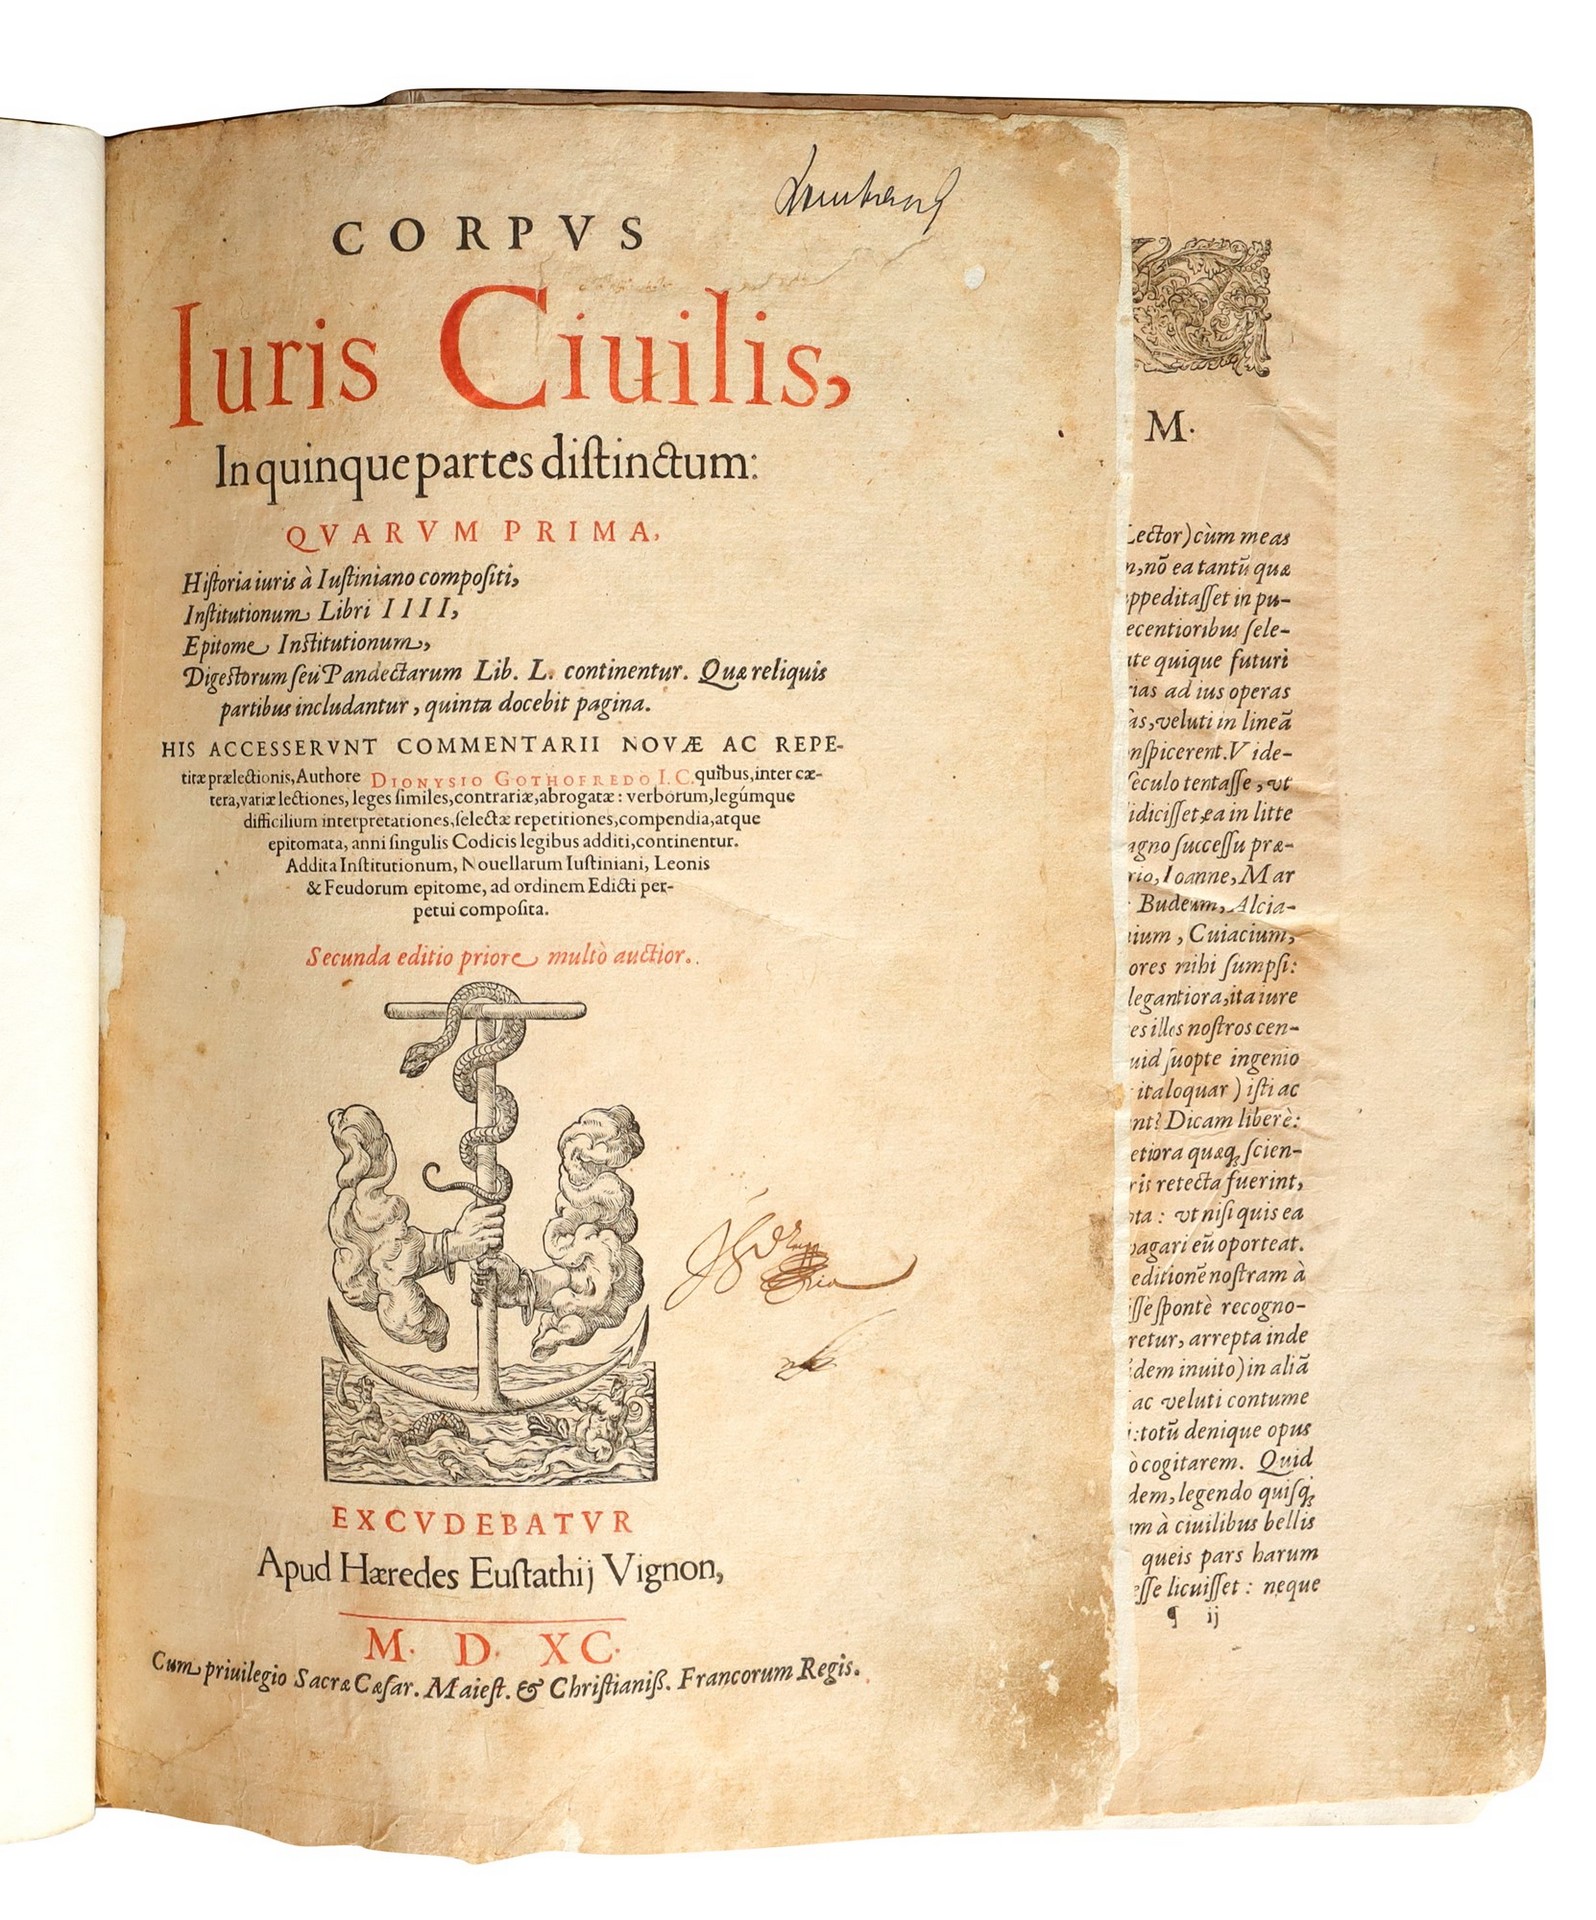 CORPVS
Iuris Ciuilis,
In quinque partes diſtinctum:
QVARVM PRIMA,
Hiſtoria iuris à Iuſtiniano compoſiti,
Inſtitutionum Libri IIII,
Epitome Inſtitutionum,
Digeſtorum ſeu Pandectarum Lib. L. continentur. Quæ reliquis
partibus includantur, quinta docebit pagina.
HIS ACCESSERVNT COMMENTARII NOVÆ AC REPE-
titæ prælectionis, Authore DIONYSIO GOTHOFREDO I.C. quibus, inter cæ-
tera, variæ lectiones, leges ſimiles, contrariæ, abrogatæ: verborum, legúmque
difficilium interpretationes, ſelectæ repetitiones, compendia, atque
epitomata, anni ſingulis Codicis legibus additi, continentur.
Addita Inſtitutionum, Nouellarum Iuſtiniani, Leonis
& Feudorum epitome, ad ordinem Edicti per-
petui compoſita.
Secunda editio priore multò auctior.
EXCVDEBATVR
Apud Hæredes Euſtathij Vignon,
M. D. XC.
Cum priuilegio Sacræ Cæſar. Maieſt. & Chriſtianiß. Francorum Regis.
M.
Lector) cùm meas
n, nō ea tantū quæ
ppeditaſſet in pu-
ecentioribus ſele-
te quique futuri
rias ad ius operas
as, veluti in lineā
nſpicerent. Vide-
ſeculo tentaſſe, vt
idiciſſet, ea in litte
agno ſucceſſu præ-
rio, Ioanne, Mar
Budeum, Alcia-
ium, Cuiacium,
ores nihi ſumpſi:
legantiora, ita iure
es illos noſtros cen-
uid ſuopte ingenio
ita loquar) iſti ac
nt? Dicam liberè:
etiora quæq; ſcien-
ris retecta fuerint,
ta: vt niſi quis ea
pagari eū oporteat.
editionē noſtram à
iſſe ſpontè recogno-
retur, arrepta inde
dem inuito) in aliā
ac veluti contume
: totū denique opus
ò cogitarem. Quid
dem, legendo quiſq;
m à ciuilibus bellis
queis pars harum
eſſe licuiſſet: neque
¶ ij